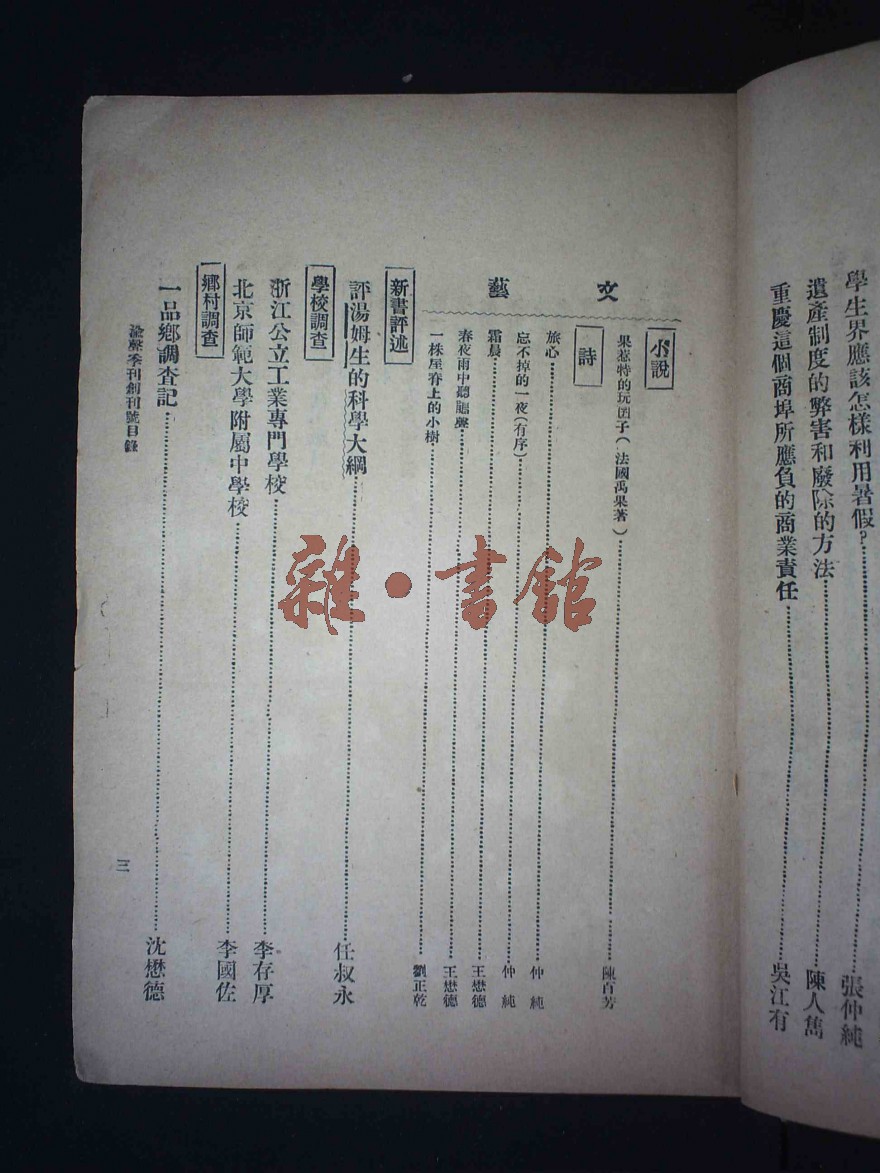 學生界應該怎樣利用暑假?……張仲純
遺產制度的弊害和廢除的方法……陳人雋
重慶這個商埠所應負的商業責任……吳江有
文藝
小說
果惹特的玩囝子(法國禹果著)……陳百芳
詩
旅心……仲純
忘不掉的一夜(有序)……仲純
霜晨……王懋德
春夜雨中聽鵑聲……王懋德
一株屋脊上的小樹……劉正乾
新書評述
評湯姆生的科學大綱……任叔永
學校調查
浙江公立工業專門學校……李存厚
北京師範大學附屬中學校……李國佐
鄉村調查
一品鄉調查記……沈懋德
渝聲季刊創刊號目錄
三
雜·書館